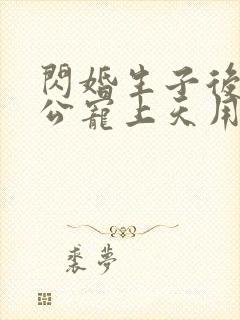 閃婚生子後
公寵上天用
裘夢